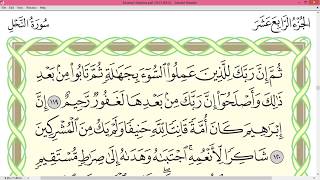 الجزء الرابع عشر
سورة النحل
ثُمَّ إِنَّ رَبَّكَ لِلَّذِينَ عَمِلُوا۟ ٱلسُّوٓءَ بِجَهَـٰلَةٍ ثُمَّ تَابُوا۟ مِنۢ بَعْدِ
ذَٰلِكَ وَأَصْلَحُوٓا۟ إِنَّ رَبَّكَ مِنۢ بَعْدِهَا لَغَفُورٌ رَّحِيمٌ ١١٩ إِنَّ
إِبْرَٰهِيمَ كَانَ أُمَّةً قَانِتًا لِّلَّهِ حَنِيفًا وَلَمْ يَكُ مِنَ ٱلْمُشْرِكِينَ
١٢٠ شَاكِرًا لِّأَنْعُمِهِ ۚ ٱجْتَبَىٰهُ وَهَدَىٰهُ إِلَىٰ صِرَٰطٍ مُّسْتَقِيمٍ